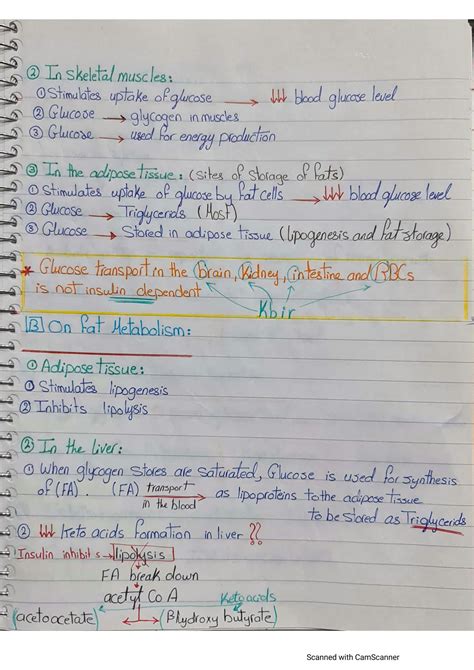 ② In skeletal muscles:
① Stimulates uptake of glucose → ↓↓↓ blood glucose level
② Glucose → glycogen in muscles
③ Glucose → used for energy production
③ In the adipose tissue: (Sites of Storage of Fats)
① Stimulates uptake of glucose by Fat cells → ↓↓↓ blood glucose level
② Glucose → Triglycerids (Most)
③ Glucose → Stored in adipose tissue (lipogenesis and fat storage)
* Glucose transport in the brain, Kidney, intestine and RBCs
is not insulin dependent
Kbir
B On Fat Metabolism:
① Adipose Tissue:
① Stimulates lipogenesis
② Inhibits lipolysis
② In the liver:
① When glycogen stores are saturated, Glucose is used for synthesis
of (FA). (FA) transport in the blood → as lipoproteins to the adipose tissue
to be stored as Triglycerids
② ↓↓↓ Keto acids formation in liver ??
Insulin inhibits → lipolysis
FA break down
acetyl Co A Ketoacids
(acetoacetate) (β hydroxy butyrate)
Scanned with CamScanner